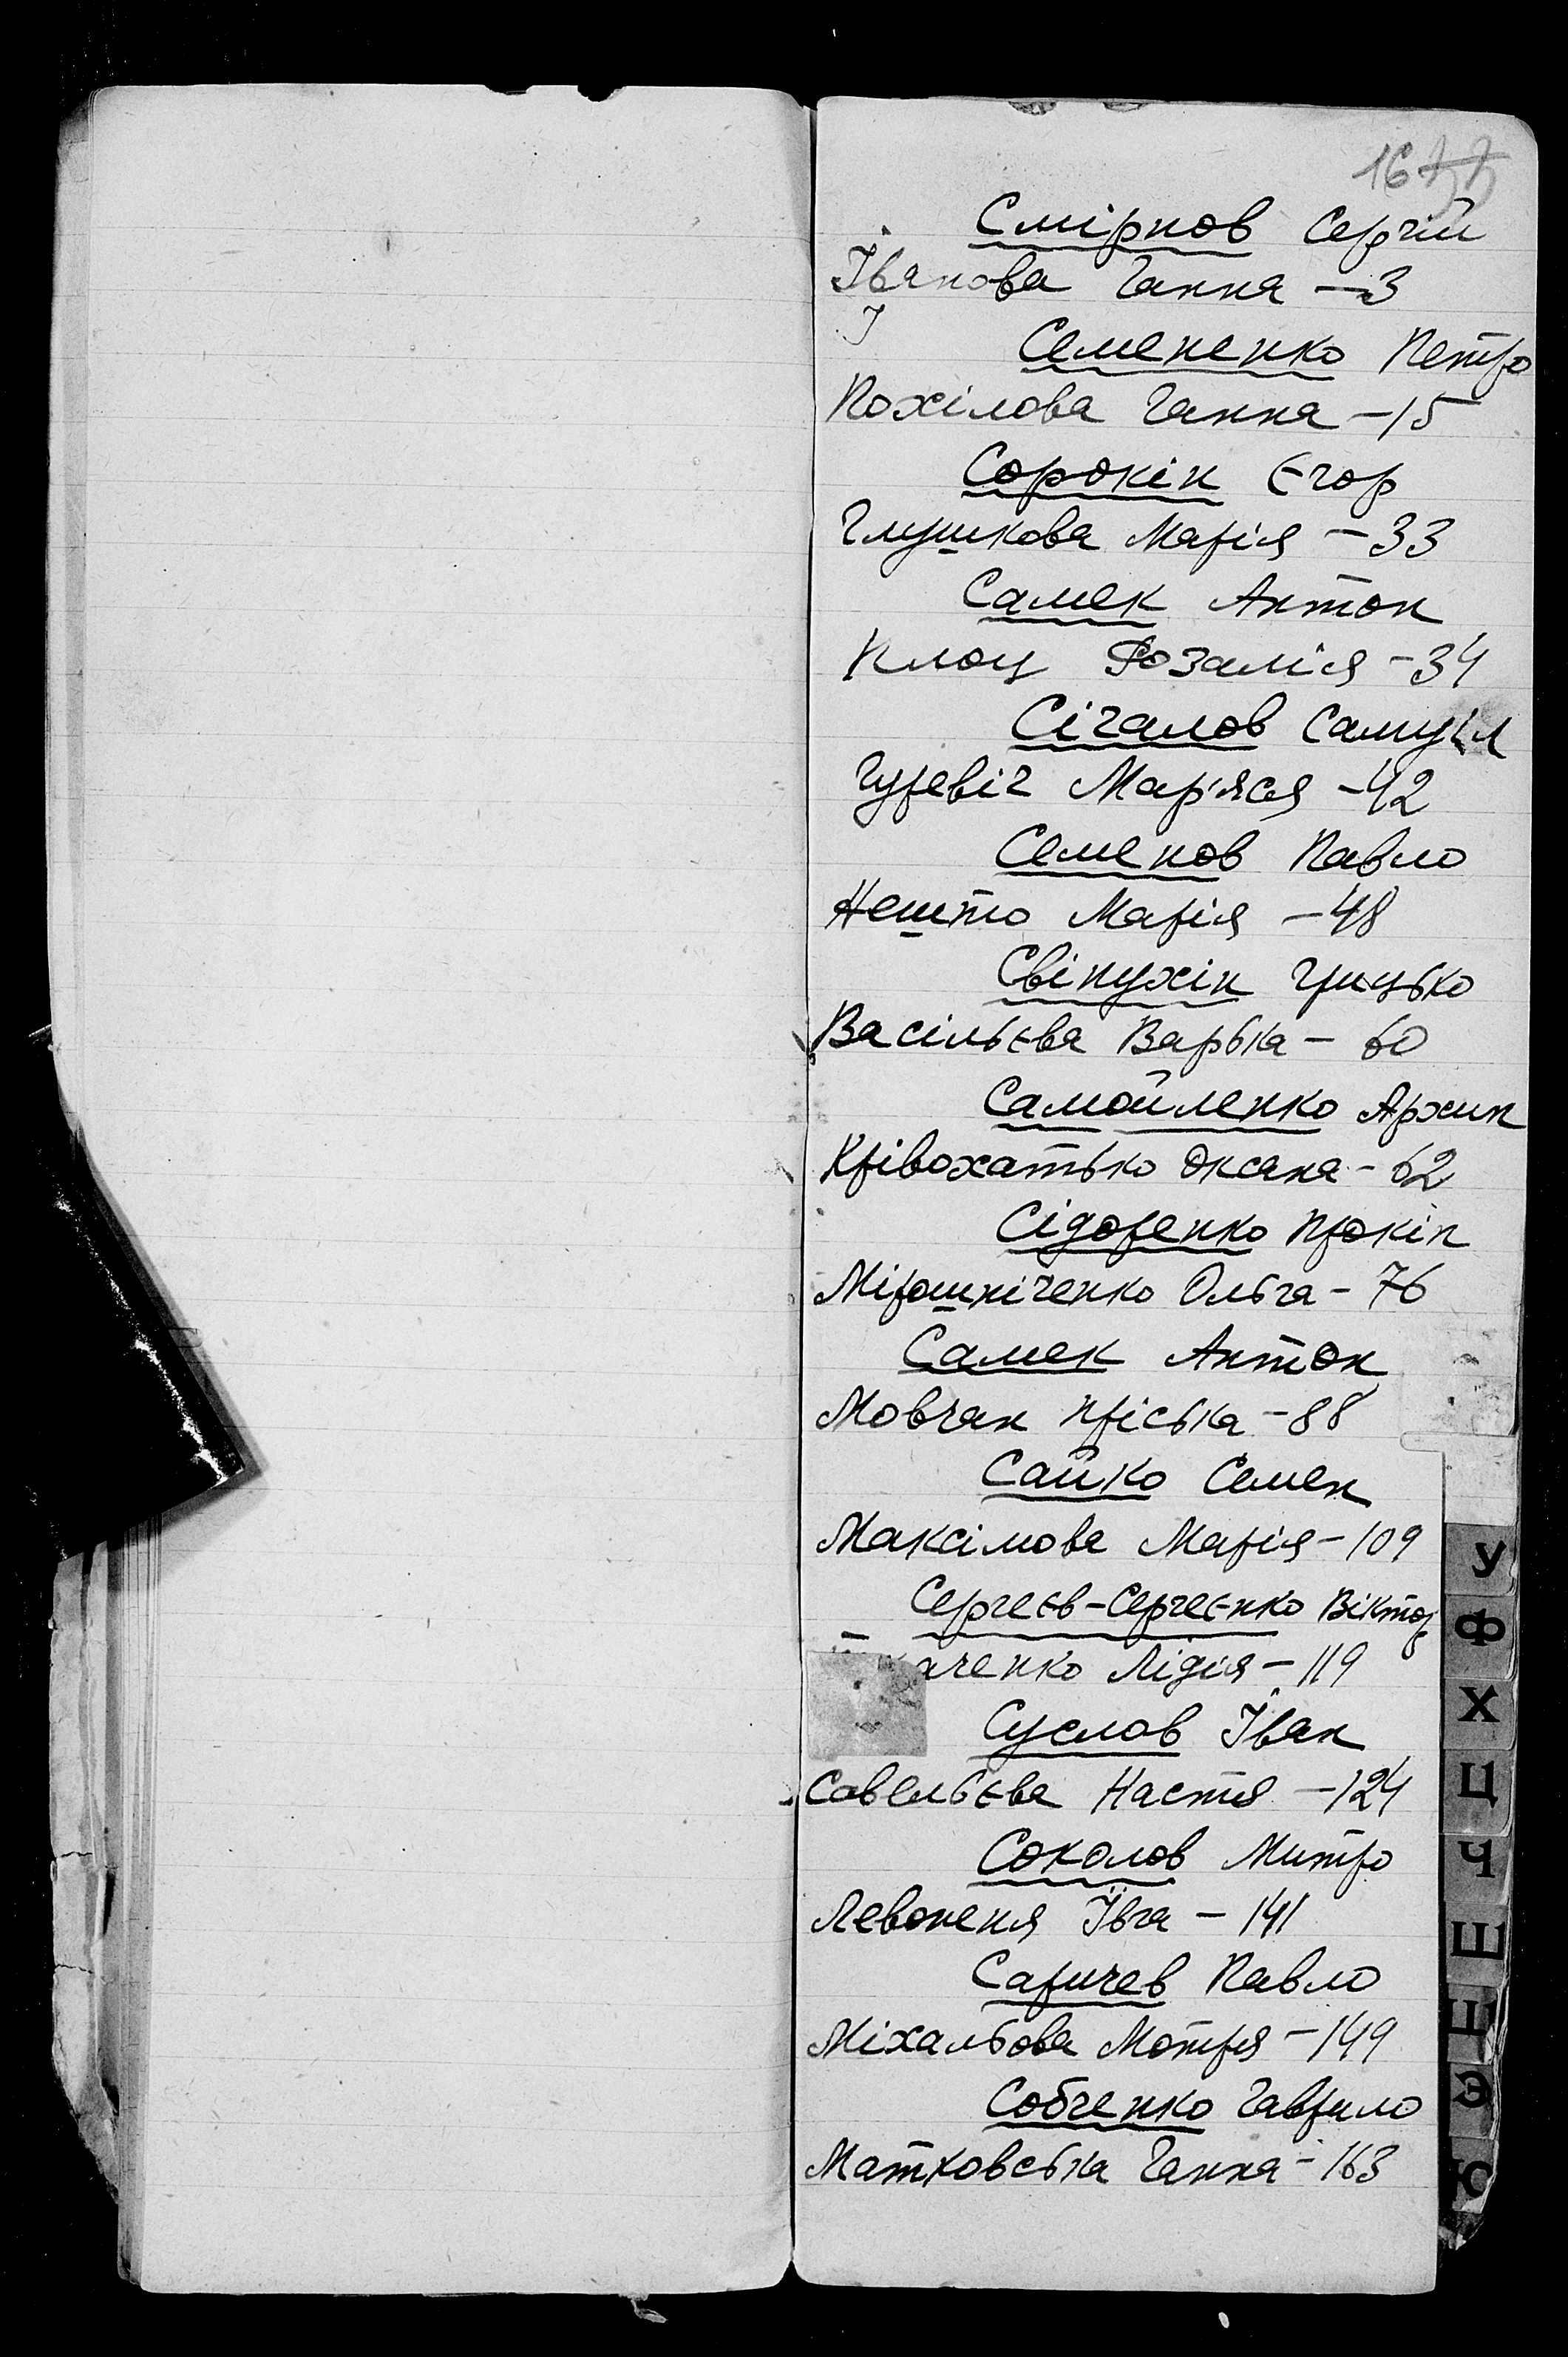 16
Смірнов Сергій
Іванова Ганна – 3
І
Семененко Петро
Похілова Ганна – 15
Сорокін Єгор
Глушкова Марія – 33
Самек Антон
Плоц Розалія – 34
Сігалов Самуїл
Гуревіч Мар'яся – 42
Семенов Павло
Нешто Марія – 48
Свінухін Грицько
Васільєва Варька – 60
Самойленко Архип
Крівохатько Оксана – 62
Сідоренко Прокіп
Мірошніченко Ольга – 76
Самек Антон
Мовчан Пріська – 88
Сайко Семен
Максімова Марія – 109
Сергеєв-Сергеєнко Віктор
Лідія – 119
Суслов Іван
Савельєва Настя – 124
Соколов Митро
Левоненя Ївга – 141
Саричев Павло
Міхальова Мотря – 149
Собченко Гаврило
Матковська Ганна – 163
У
Ф
Х
Ц
Ч
Ш
Щ
Э
Ю